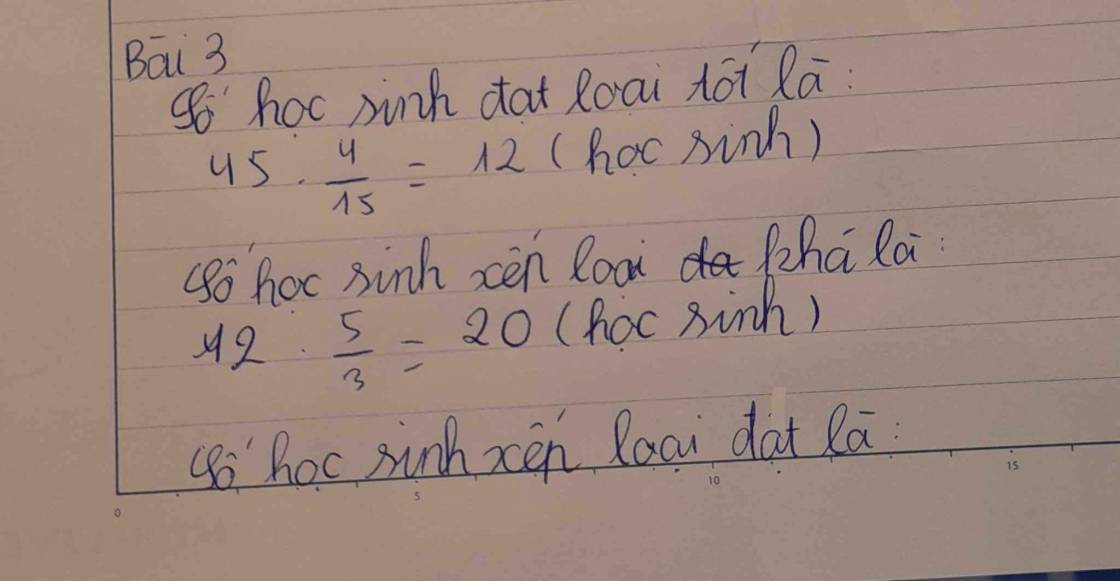 Bài 3
Số học sinh đạt loại tốt là:
45 . 4/15 = 12 (học sinh)
Số học sinh xếp loại khá là:
12 . 5/3 = 20 (học sinh)
Số học sinh xếp loại đạt là:
0 5 10 15